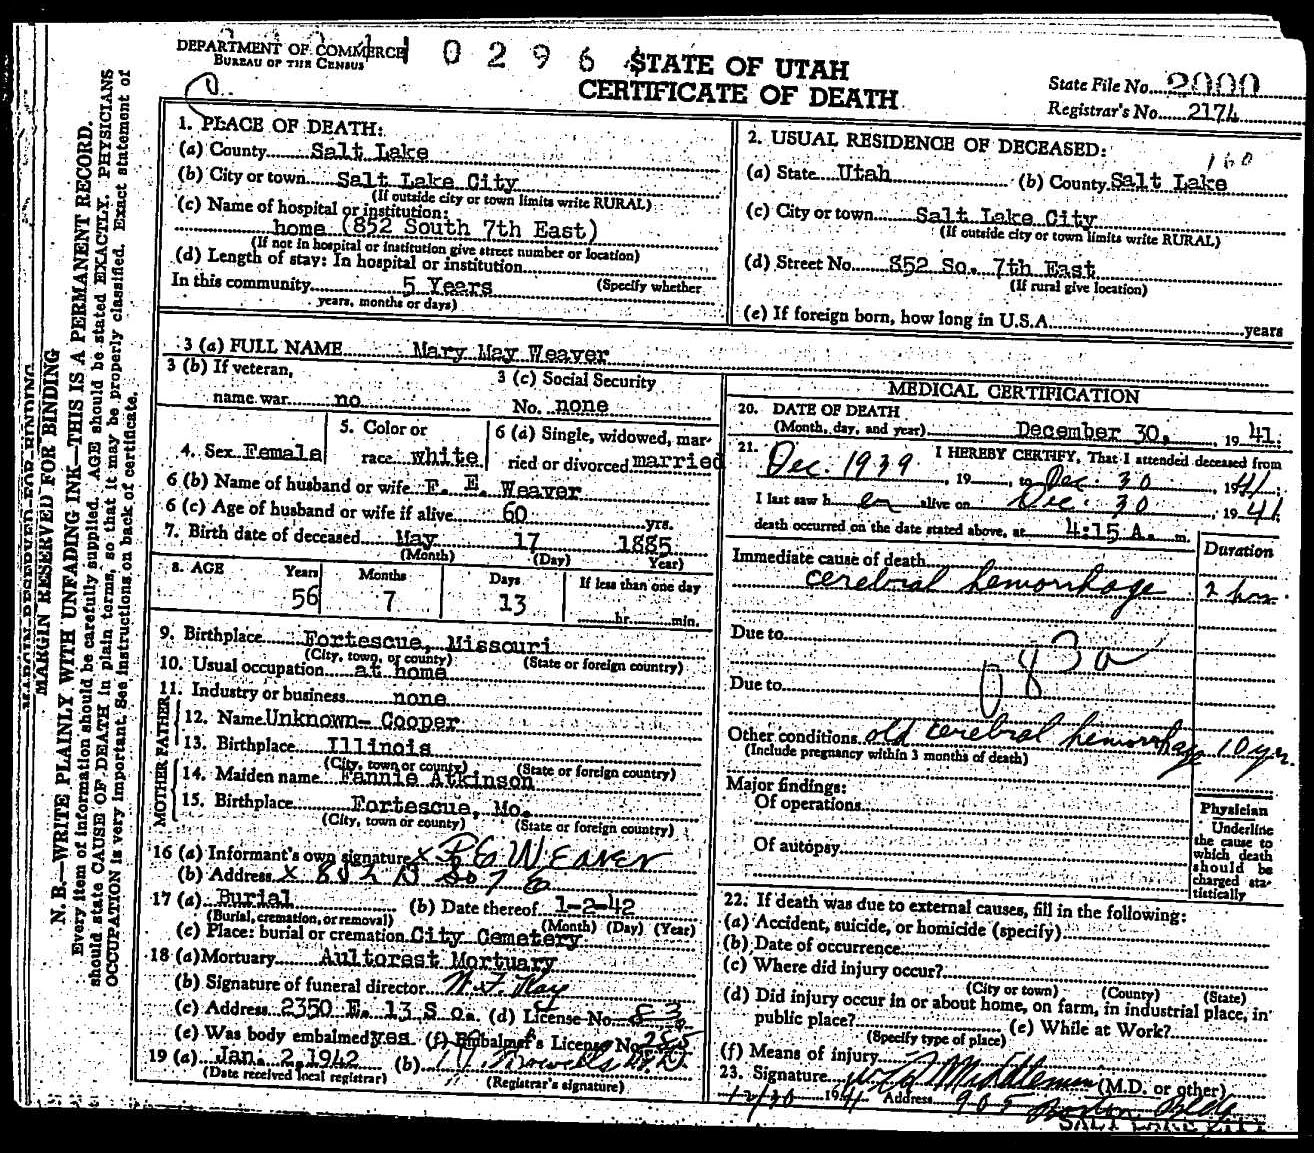 DEPARTMENT OF COMMERCE
BUREAU OF THE CENSUS
0 2 9 6
STATE OF UTAH
CERTIFICATE OF DEATH
State File No. 2000
Registrar's No. 2174
MARGIN RESERVED FOR BINDING
N. B.—WRITE PLAINLY WITH UNFADING INK—THIS IS A PERMANENT RECORD.
Every item of information should be carefully supplied. AGE should be stated EXACTLY. PHYSICIANS
should state CAUSE OF DEATH in plain terms, so that it may be properly classified. Exact statement of
OCCUPATION is very important. See instructions on back of certificate.
1. PLACE OF DEATH:
(a) County Salt Lake
(b) City or town Salt Lake City
(If outside city or town limits write RURAL)
(c) Name of hospital or institution:
home (852 South 7th East)
(If not in hospital or institution give street number or location)
(d) Length of stay: In hospital or institution
In this community 5 Years (Specify whether
years, months or days)
2. USUAL RESIDENCE OF DECEASED:
160
(a) State Utah (b) County Salt Lake
(c) City or town Salt Lake City
(If outside city or town limits write RURAL)
(d) Street No. 852 So. 7th East
(If rural give location)
(e) If foreign born, how long in U.S.A. years
3 (a) FULL NAME Mary May Weaver
3 (b) If veteran, name war no
3 (c) Social Security No. none
4. Sex Female
5. Color or race white
6 (a) Single, widowed, married or divorced married
6 (b) Name of husband or wife F. E. Weaver
6 (c) Age of husband or wife if alive 60 yrs.
7. Birth date of deceased May 17 1885
(Month) (Day) Year)
8. AGE Years Months Days If less than one day
56 7 13 hr. min.
9. Birthplace Fortescue, Missouri
(City, town, or county) (State or foreign country)
10. Usual occupation at home
11. Industry or business none
FATHER
12. Name Unknown- Cooper
13. Birthplace Illinois
(City, town or county) (State or foreign country)
MOTHER
14. Maiden name Fannie Atkinson
15. Birthplace Fortescue, Mo.
(City, town or county) (State or foreign country)
16 (a) Informant's own signature x E Weaver
(b) Address x 852 So 7 E
17 (a) Burial (b) Date thereof 1-2-42
(Burial, cremation, or removal) (Month) (Day) (Year)
(c) Place: burial or cremation City Cemetery
18 (a) Mortuary Aultorest Mortuary
(b) Signature of funeral director
(c) Address 2350 E. 13 So. (d) License No.
(e) Was body embalmed yes (f) Embalmer's License No.
19 (a) Jan. 2, 1942 (b)
(Date received local registrar) (Registrar's signature)
MEDICAL CERTIFICATION
20. DATE OF DEATH
(Month, day, and year) December 30, 1941.
21. I HEREBY CERTIFY, That I attended deceased from
Dec. 1939, 19 , to Dec. 30 1941.
I last saw her alive on Dec. 30, 1941
death occurred on the date stated above, at 4:15 A. m.
Duration
Immediate cause of death
cerebral hemorrhage 2 hrs.
Due to
83a
Due to
Other conditions old cerebral hemorrhage 10 yr.
(Include pregnancy within 3 months of death)
Major findings:
Of operations
Of autopsy
Physician
Underline
the cause to
which death
should be
charged sta-
tistically
22. If death was due to external causes, fill in the following:
(a) Accident, suicide, or homicide (specify)
(b) Date of occurrence
(c) Where did injury occur?
(City or town) (County) (State)
(d) Did injury occur in or about home, on farm, in industrial place, in
public place? (e) While at Work?
(Specify type of place)
(f) Means of injury
23. Signature Middleman (M.D. or other)
12/30 1941 Address 905 Boston Bldg
SALT LAKE CITY